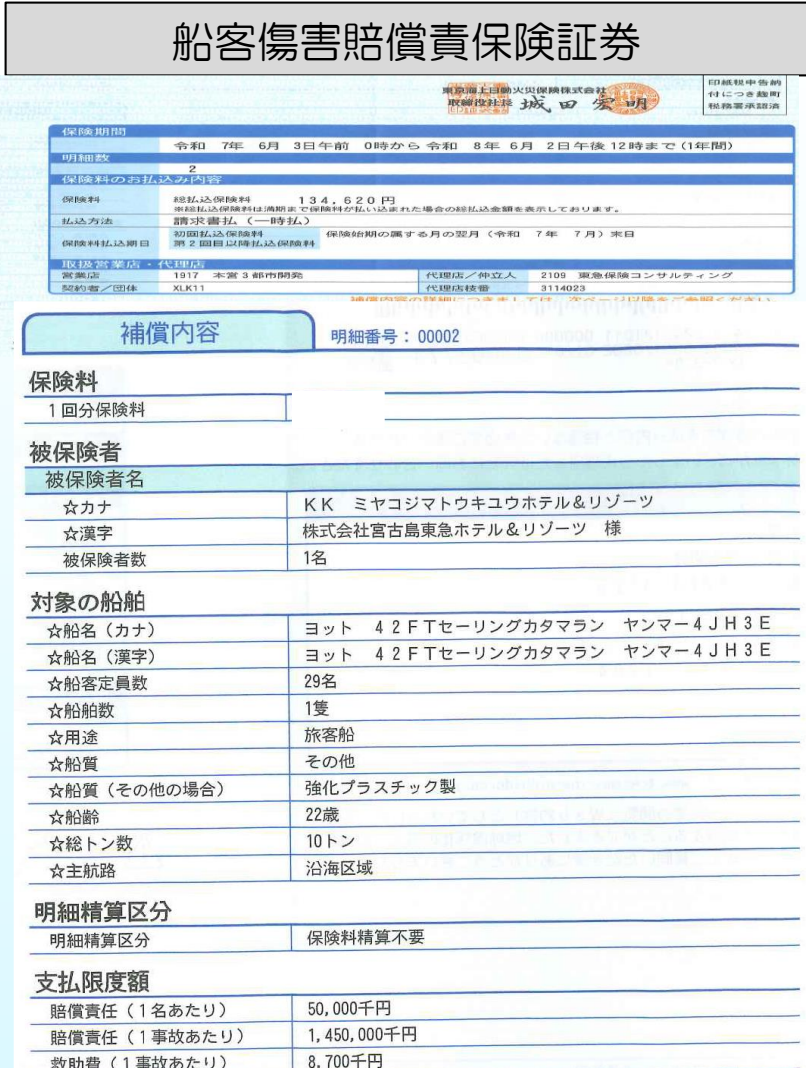 船客傷害賠償責保険証券
東京海上日動火災保険株式会社
取締役社長 城田 宏明
印紙税申告納
付につき麹町
税務署承認済
保険期間
令和 7年 6月 3日午前 0時から 令和 8年 6月 2日午後12時まで(1年間)
明細数
2
保険料のお払込み内容
保険料 総払込保険料 134,620円
※総払込保険料は満期まで保険料が払い込まれた場合の総払込金額を表示しております。
払込方法 請求書払(一時払)
保険料払込期日 初回払込保険料 保険始期の属する月の翌月(令和 7年 7月)末日
第2回目以降払込保険料
取扱営業店・代理店
営業店 1917 本営3都市開発 代理店/仲立人 2109 東急保険コンサルティング
契約者/団体 XLK11 代理店枝番 3114023
補償内容の詳細につきましては、次ページ以降をご参照ください
補償内容 明細番号:00002
保険料
1回分保険料
被保険者
被保険者名
☆カナ KK ミヤコジマトウキユウホテル&リゾーツ
☆漢字 株式会社宮古島東急ホテル&リゾーツ 様
被保険者数 1名
対象の船舶
☆船名(カナ) ヨット 42FTセーリングカタマラン ヤンマー4JH3E
☆船名(漢字) ヨット 42FTセーリングカタマラン ヤンマー4JH3E
☆船客定員数 29名
☆船舶数 1隻
☆用途 旅客船
☆船質 その他
☆船質(その他の場合) 強化プラスチック製
☆船齢 22歳
☆総トン数 10トン
☆主航路 沿海区域
明細精算区分
明細精算区分 保険料精算不要
支払限度額
賠償責任(1名あたり) 50,000千円
賠償責任(1事故あたり) 1,450,000千円
救助費(1事故あたり) 8,700千円